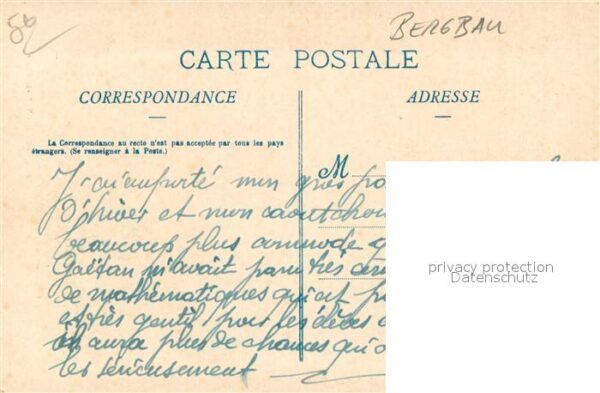 56
BERGBAU
CARTE POSTALE
CORRESPONDANCE
ADRESSE
La Correspondance au recto n'est pas acceptée par tous les pays
étrangers. (Se renseigner à la Poste.)
M
J'ai emporté mon gros
D'hiver et mon
beaucoup plus commode
Gaëtan m'avait paru très
de mathématiques qui est
est très gentil pour les élèves
aura plus de chances
les sérieusement
privacy protection
Datenschutz